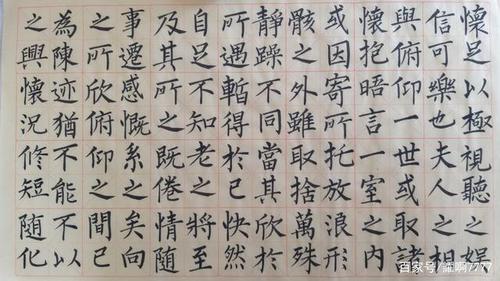 懷足以極視聽之娛
信可樂也夫人之相
與俯仰一世或取諸
懷抱晤言一室之內
或因寄所托放浪形
骸之外雖取捨萬殊
靜躁不同當其欣於
所遇暫得於己快然
自足不知老之將至
及其所之既倦情隨
事遷感慨系之矣向
之所欣俯仰之間已
為陳迹猶不能不以
之興懷況修短隨化
百家号/